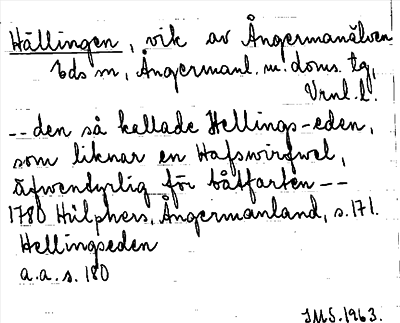 Hällingen, vik av Ångermanälven
Eds sn, Ångermanl. m. doms. tg,
Vrnl. l.
-- den så kallade Hellings-eden,
som liknar en Hafswirfwel,
äfwentyrlig för båtfarten --
1780 Hülphers, Ångermanland, s. 171.
Hellingseden
a.a. s. 180
JMS. 1963.